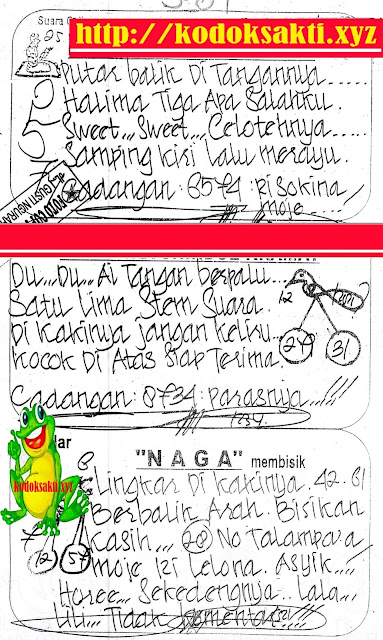 Suara
25
http://kodoksakti.xyz
Putar balik Di Tangannya......
Halima Tiga Apa Salahku.
Sweet,,, Sweet,,, Celotehnya.....
Samping Kiri Lalu Merayu.
Cadangan: 6574: Pisokina
moje....!
Du,,,Du,,,Ai Tangan berpalu...
Satu Lima Stem Suara.
Di Kakinya Jangan Keliru..
Kocok Di Atas Siap Terima.
12
24
31
Cadangan: 8734: Parasnya...!!!
1234
"NAGA" membisik
Lingkar Di Kakinya. 42.81
Berbalik Arah. Bisikan
Kasih,,, 28 No Talampau'a
moje izi Lelona. Asyik...!
Horee,,, Sekedengnya.. Lala,,,
Lili,,, Tidak Sementara!!!
7
12
57
kodoksakti.xyz